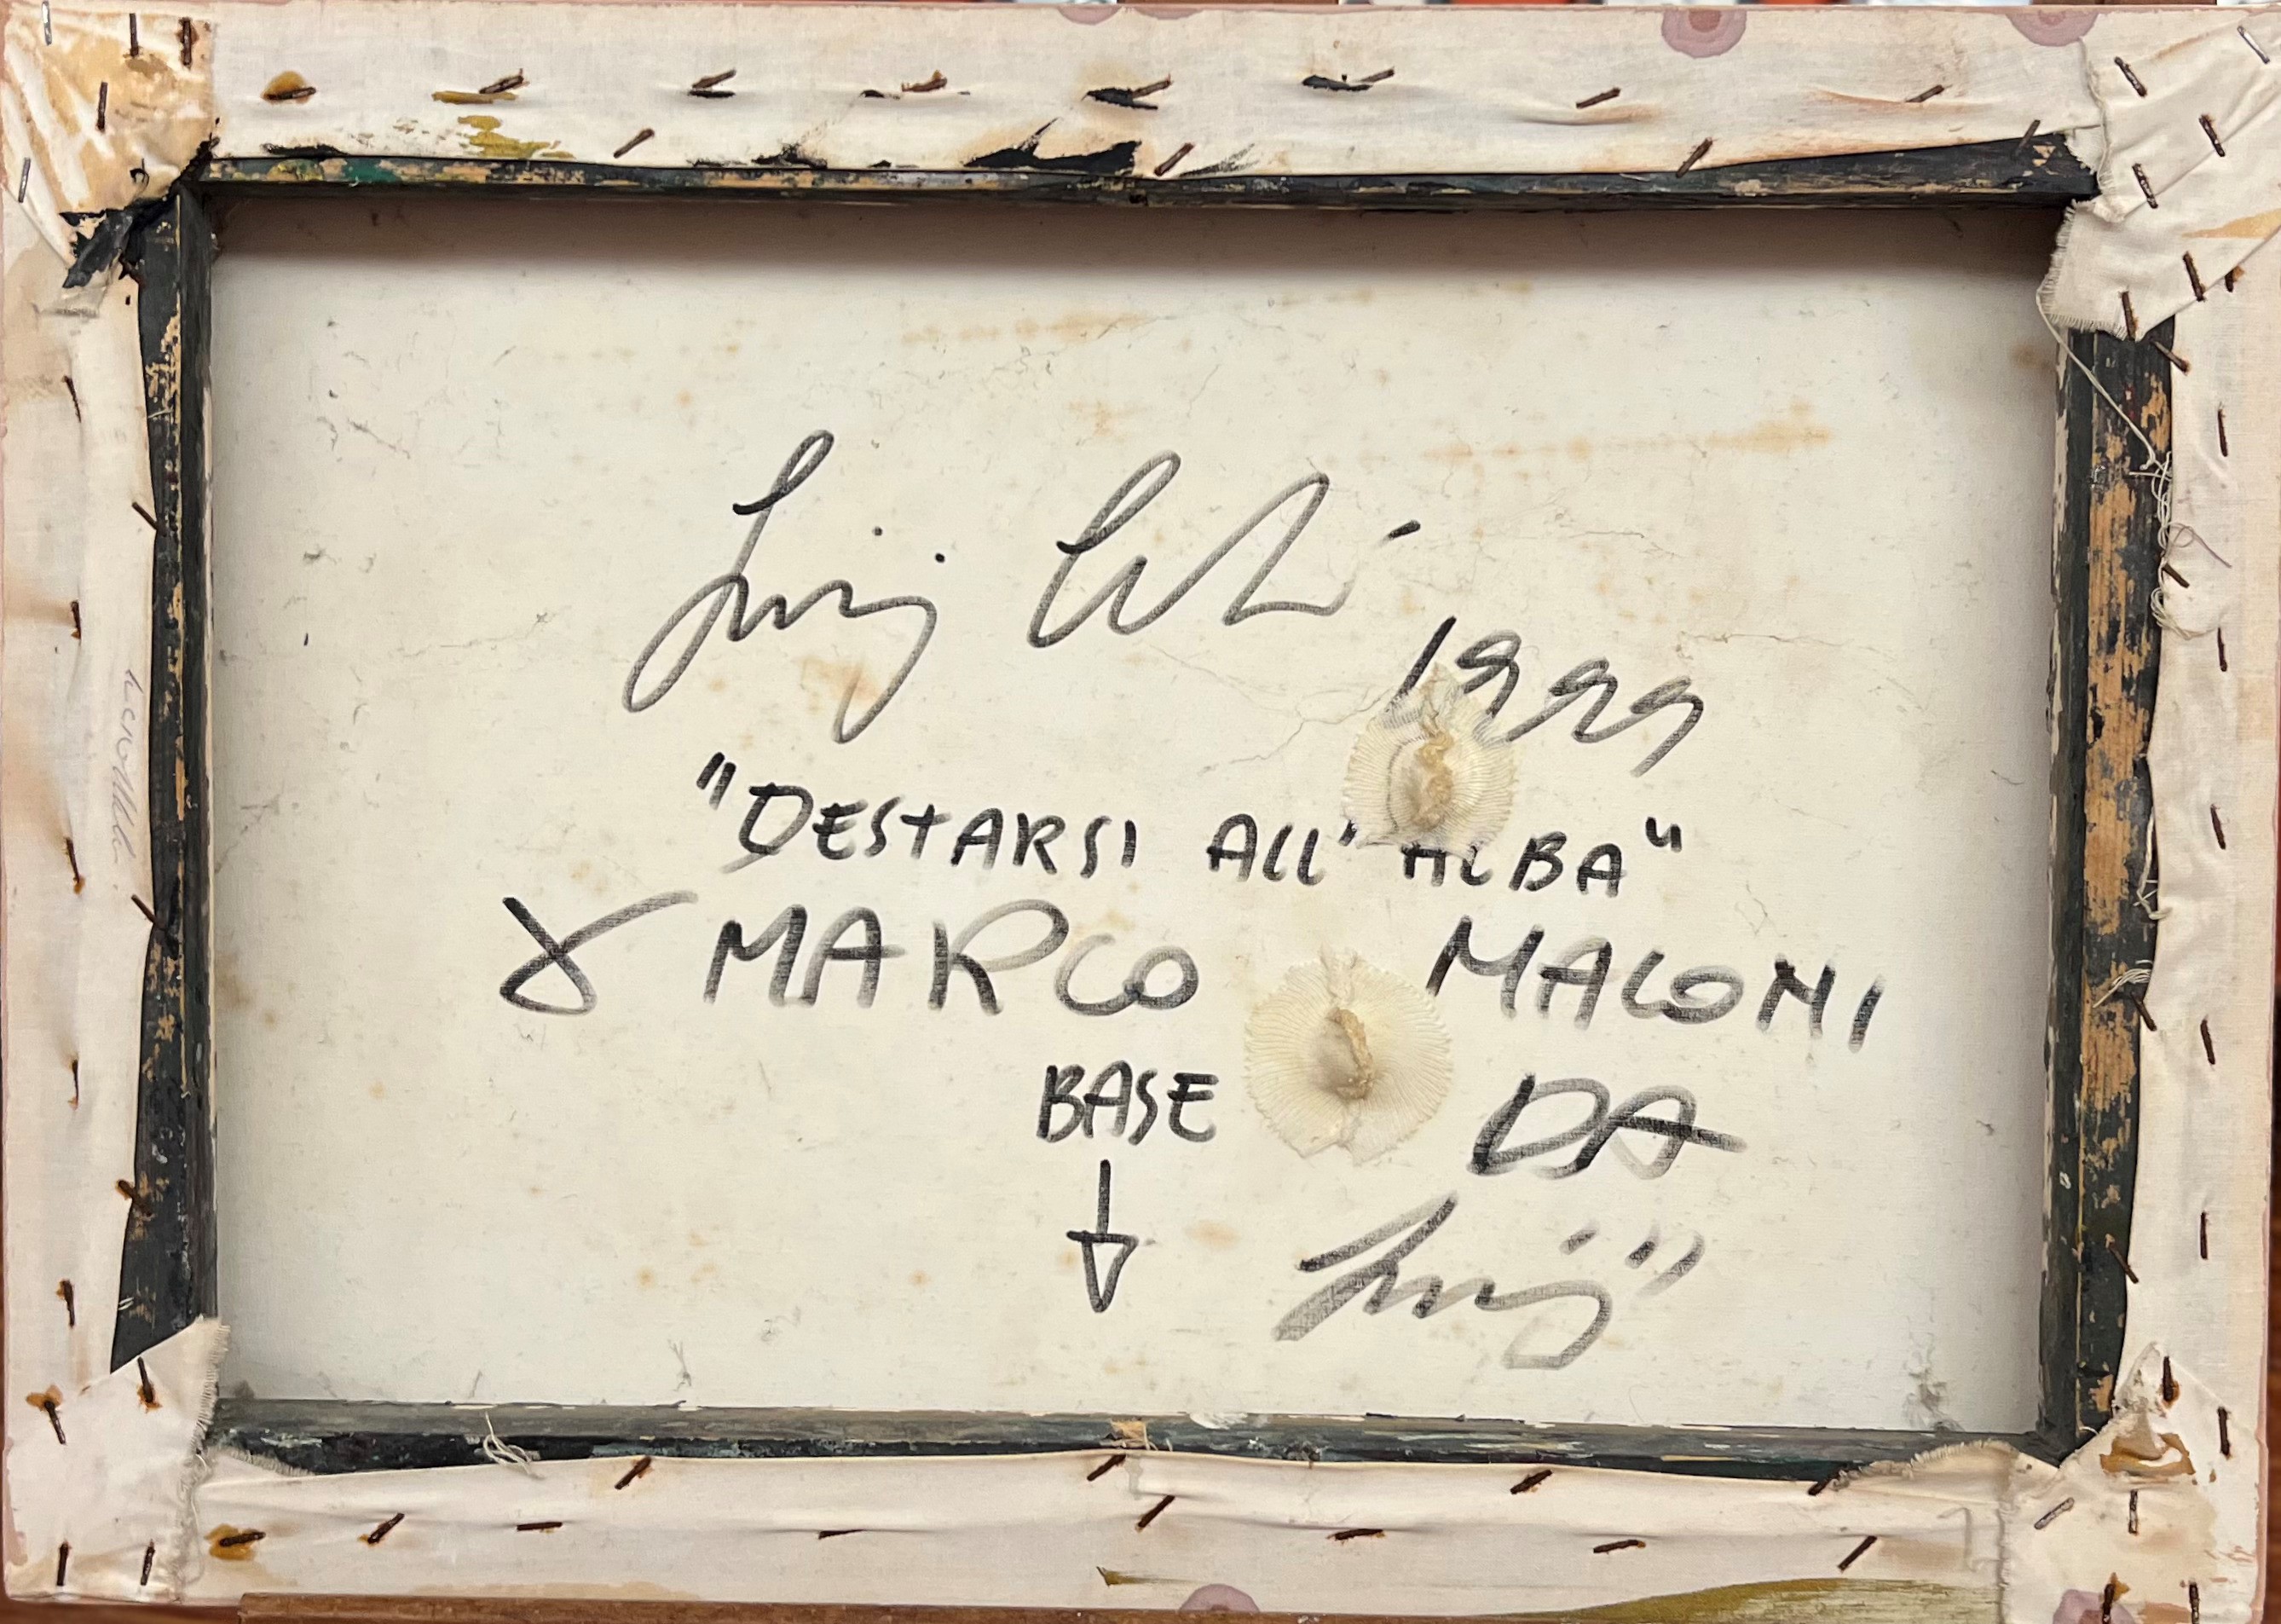 Luigi
1999
"DESTARSI ALL' ALBA"
X MARCO MALONI
BASE DA
Luigi"